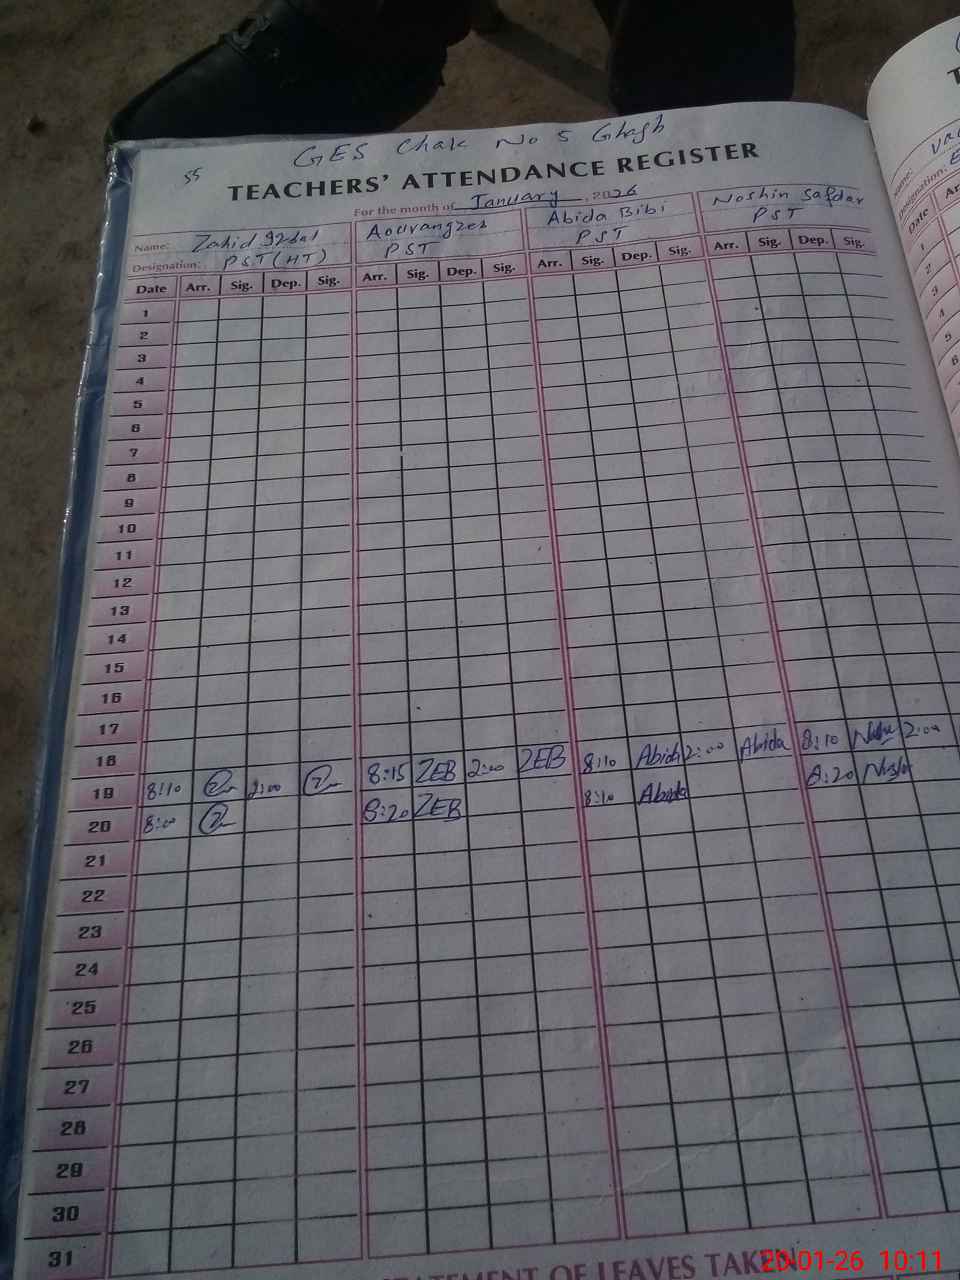 GES Chak No 5 Ghagh
55
TEACHERS' ATTENDANCE REGISTER
For the month of January, 2026
Name: Zahid Iqbal Aourangzeb Abida Bibi Noshin Safdar
Designation: PST (HT) PST PST PST
Date Arr. Sig. Dep. Sig. Arr. Sig. Dep. Sig. Arr. Sig. Dep. Sig. Arr. Sig. Dep. Sig.
1
2
3
4
5
6
7
8
9
10
11
12
13
14
15
16
17
18
19 8:10 2:00 8:15 ZEB 2:00 ZEB 8:10 Abida 2:00 Abida 8:10 2:00
20 8:00 8:20 ZEB 8:10 Abida 8:20
21
22
23
24
25
26
27
28
29
30
31
STATEMENT OF LEAVES TAKEN
20-01-26 10:11
Name:
Designation:
Date
1
2
3
4
5
6